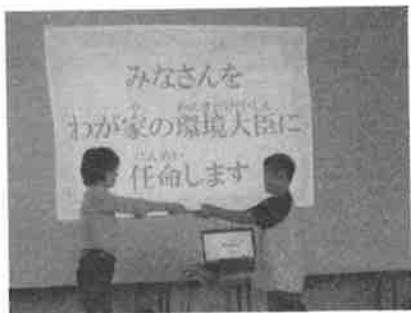 みなさんを
わが家の環境大臣に
任命します